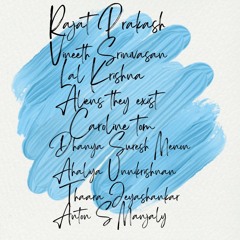 Rajat Prakash
Vineeth Srinivasan
Lal Krishna
Aliens they exist
Caroline tom
Dhanya Suresh Menon
Ahalya Unnikrishnan
Thaara Jeyashankar
Anton S Manjaly